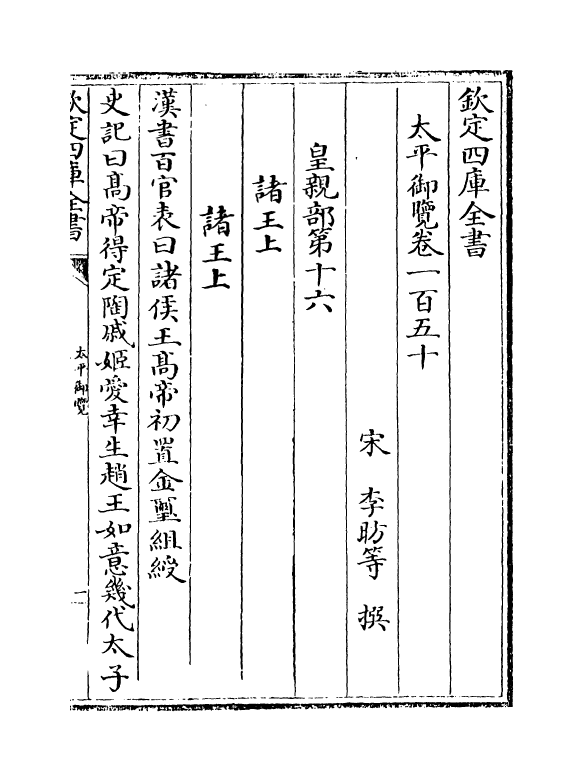 欽定四庫全書
太平御覽卷一百五十
宋 李昉等 撰
皇親部第十六
諸王上
諸王上
漢書百官表曰諸侯王高帝初置金璽組綬
史記曰高帝得定陶戚姬愛幸生趙王如意幾代太子
欽定四庫全書
太平御覽
一